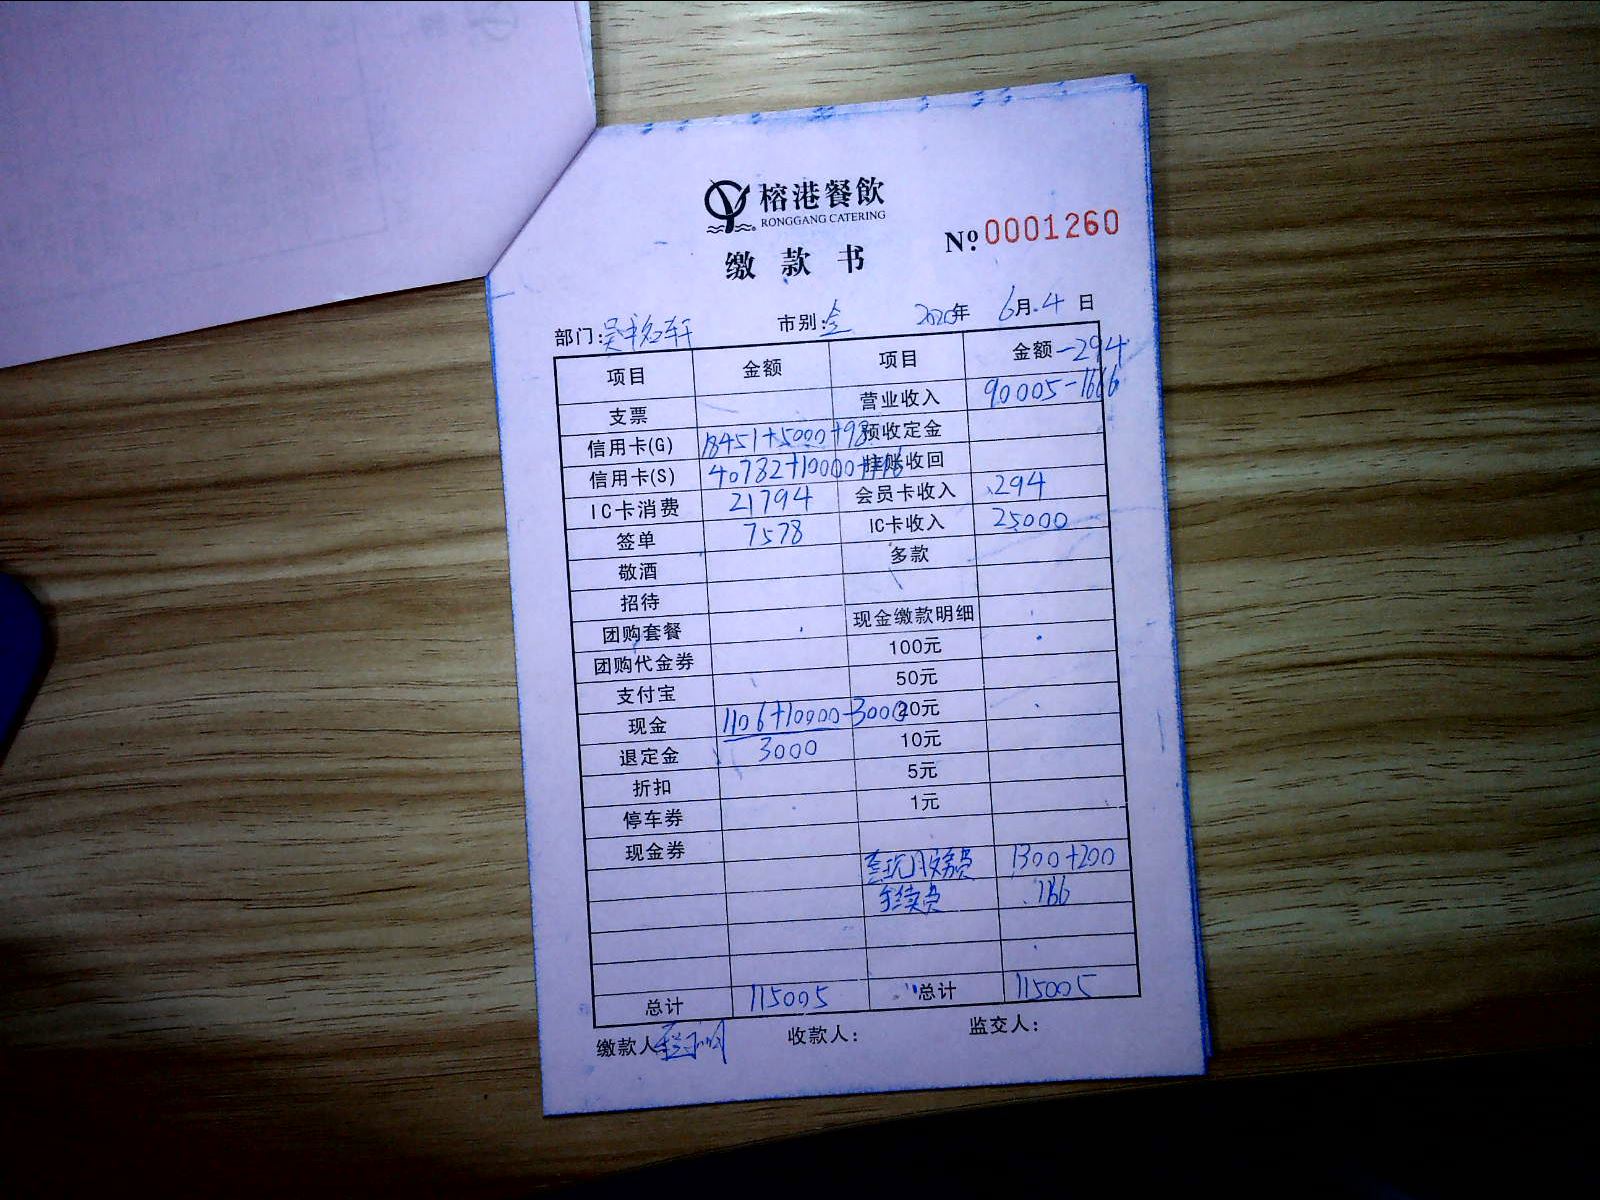 榕港餐飲
RONGGANG CATERING
缴款书
Nº 0001260
部门: 市别:全 2020年 6月.4日
项目 金额 项目 金额 -294
支票 营业收入 90005-1666
信用卡(G) 18451+5000+98 预收定金
信用卡(S) 40782+10000+ 挂账收回
IC卡消费 21794 会员卡收入 294
签单 7578 IC卡收入 25000
敬酒 多款
招待
团购套餐 现金缴款明细
团购代金券 100元
支付宝 50元
现金 1106+10000-3000 20元
退定金 3000 10元
折扣 5元
停车券 1元
现金券
1300+200
手续费 166
总计 115005 总计 115005
缴款人 收款人: 监交人: